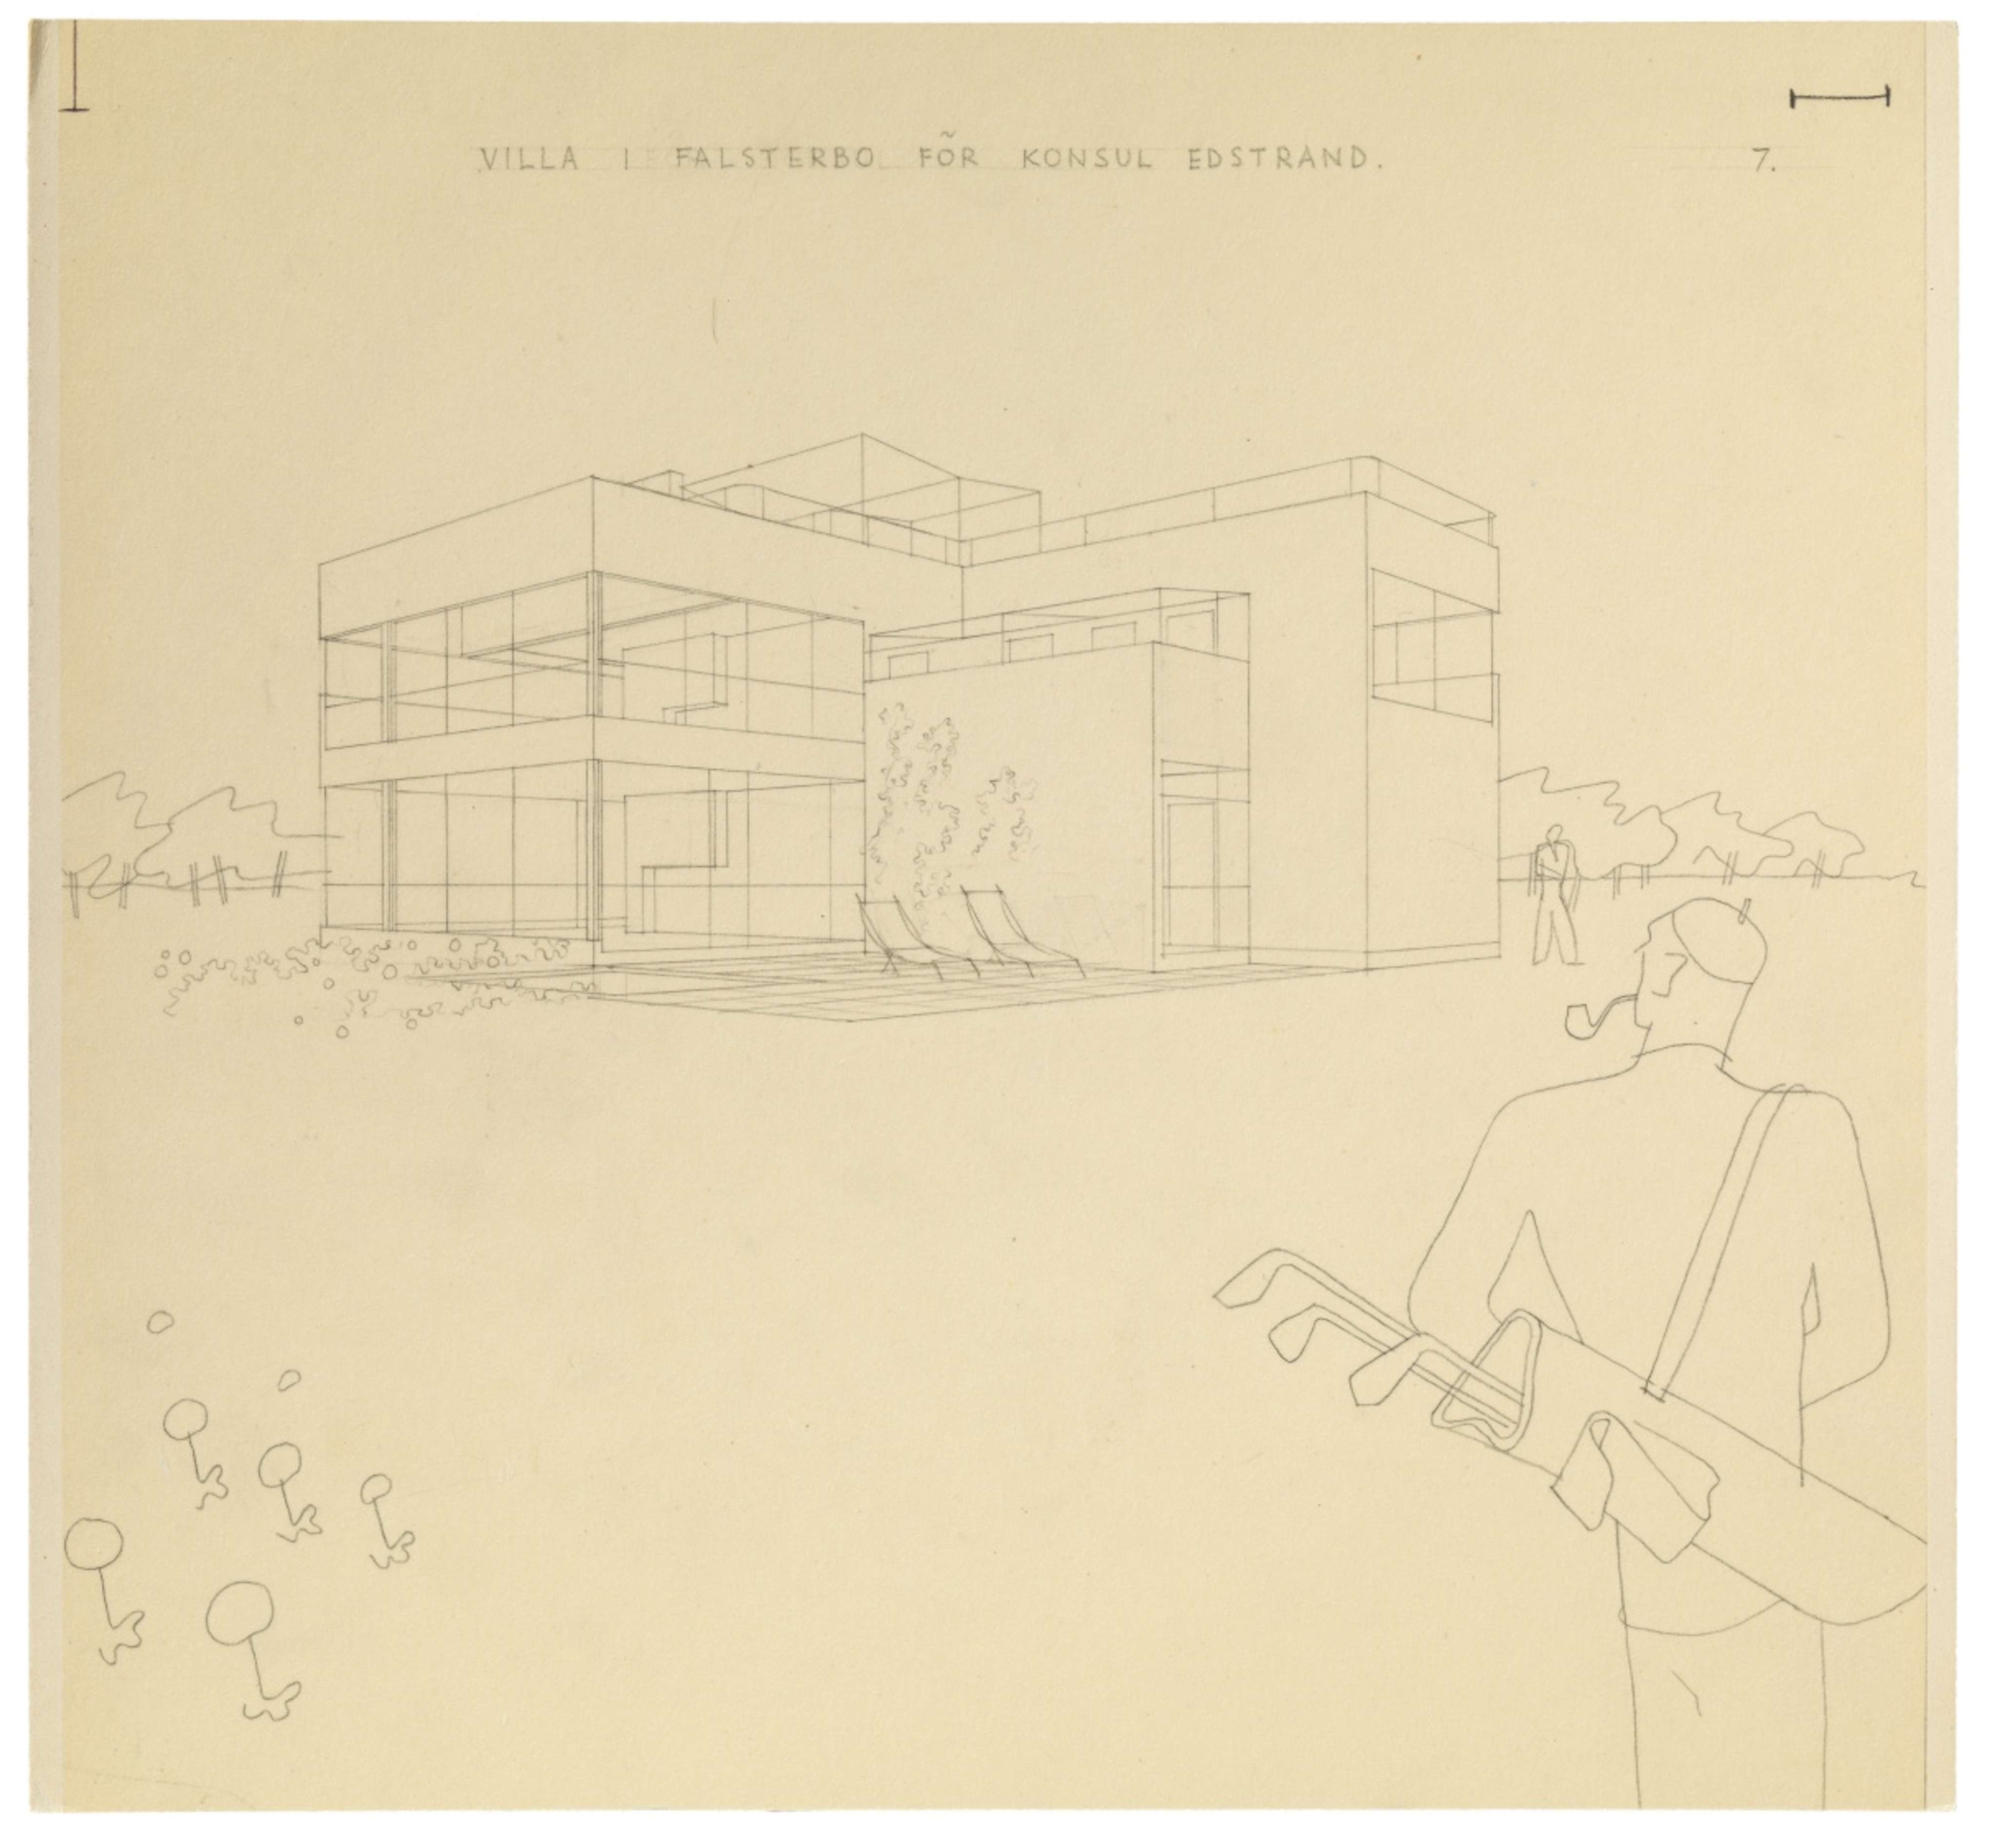 VILLA I FALSTERBO FÖR KONSUL EDSTRAND.
7.